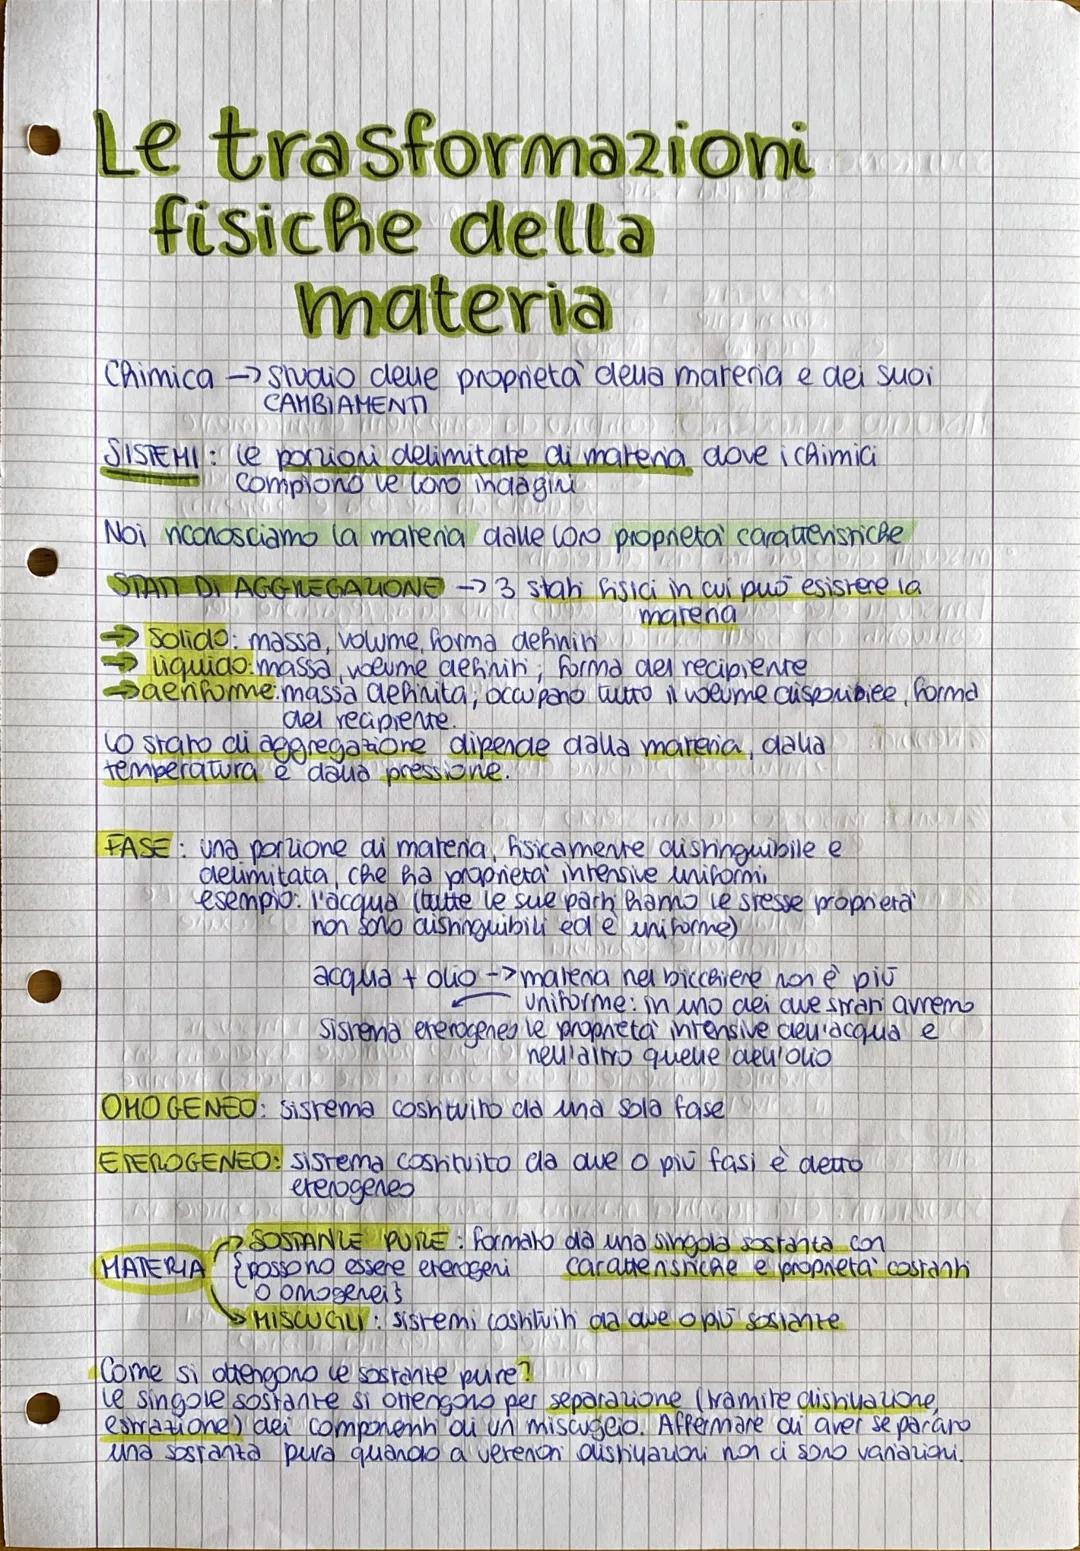 Le trasformazioni
fisiche della
materia
Chimica → studio delle proprietà della materia e dei suoi
CAMBIAMENTI
SISTEMI: le porzioni delimitate di materia dove i chimici
compiono le loro indagini
Noi riconosciamo la materia dalle loro proprietà caratteristiche
STATI DI AGGREGAZIONE → 3 stati fisici in cui può esistere la
materia
→ Solido: massa, volume, forma definiti
→ liquido: massa, volume definiti; forma del recipiente
→ aeriforme: massa definita; occupano tutto il volume disponibile, forma
del recipiente.
Lo stato di aggregazione dipende dalla materia, dalla
temperatura e dalla pressione.
FASE: una porzione di materia, fisicamente distinguibile e
delimitata, che ha proprietà intensive uniformi,
esempio: l'acqua (tutte le sue parti hanno le stesse proprietà
non sono distinguibili ed è uniforme)
acqua + olio -> materia nel bicchiere non è più
uniforme: in uno dei due strati avremo
Sistema eterogeneo le proprietà intensive dell'acqua e
nell'altro quelle dell'olio
OMOGENEO: sistema costituito da una sola fase
ETEROGENEO: sistema costituito da due o più fasi è detto
eterogeneo
SOSTANZE PURE: formato da una singola sostanza con
MATERIA {possono essere eterogeni caratteristiche e proprietà costanti
o omogenei}
MISCUGLI: sistemi costituiti da due o più sostanze
Come si ottengono le sostanze pure?
Le singole sostanze si ottengono per separazione (tramite distillazione,
estrazione) dei componenti di un miscuglio. Affermare di aver separato
una sostanza pura quando a ulteriori distillazioni non ci sono variazioni.